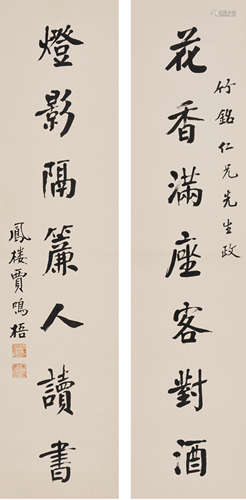 花香滿座客對酒
竹銘仁兄先生政
燈影隔簾人讀書
鳳樓賈鳴梧